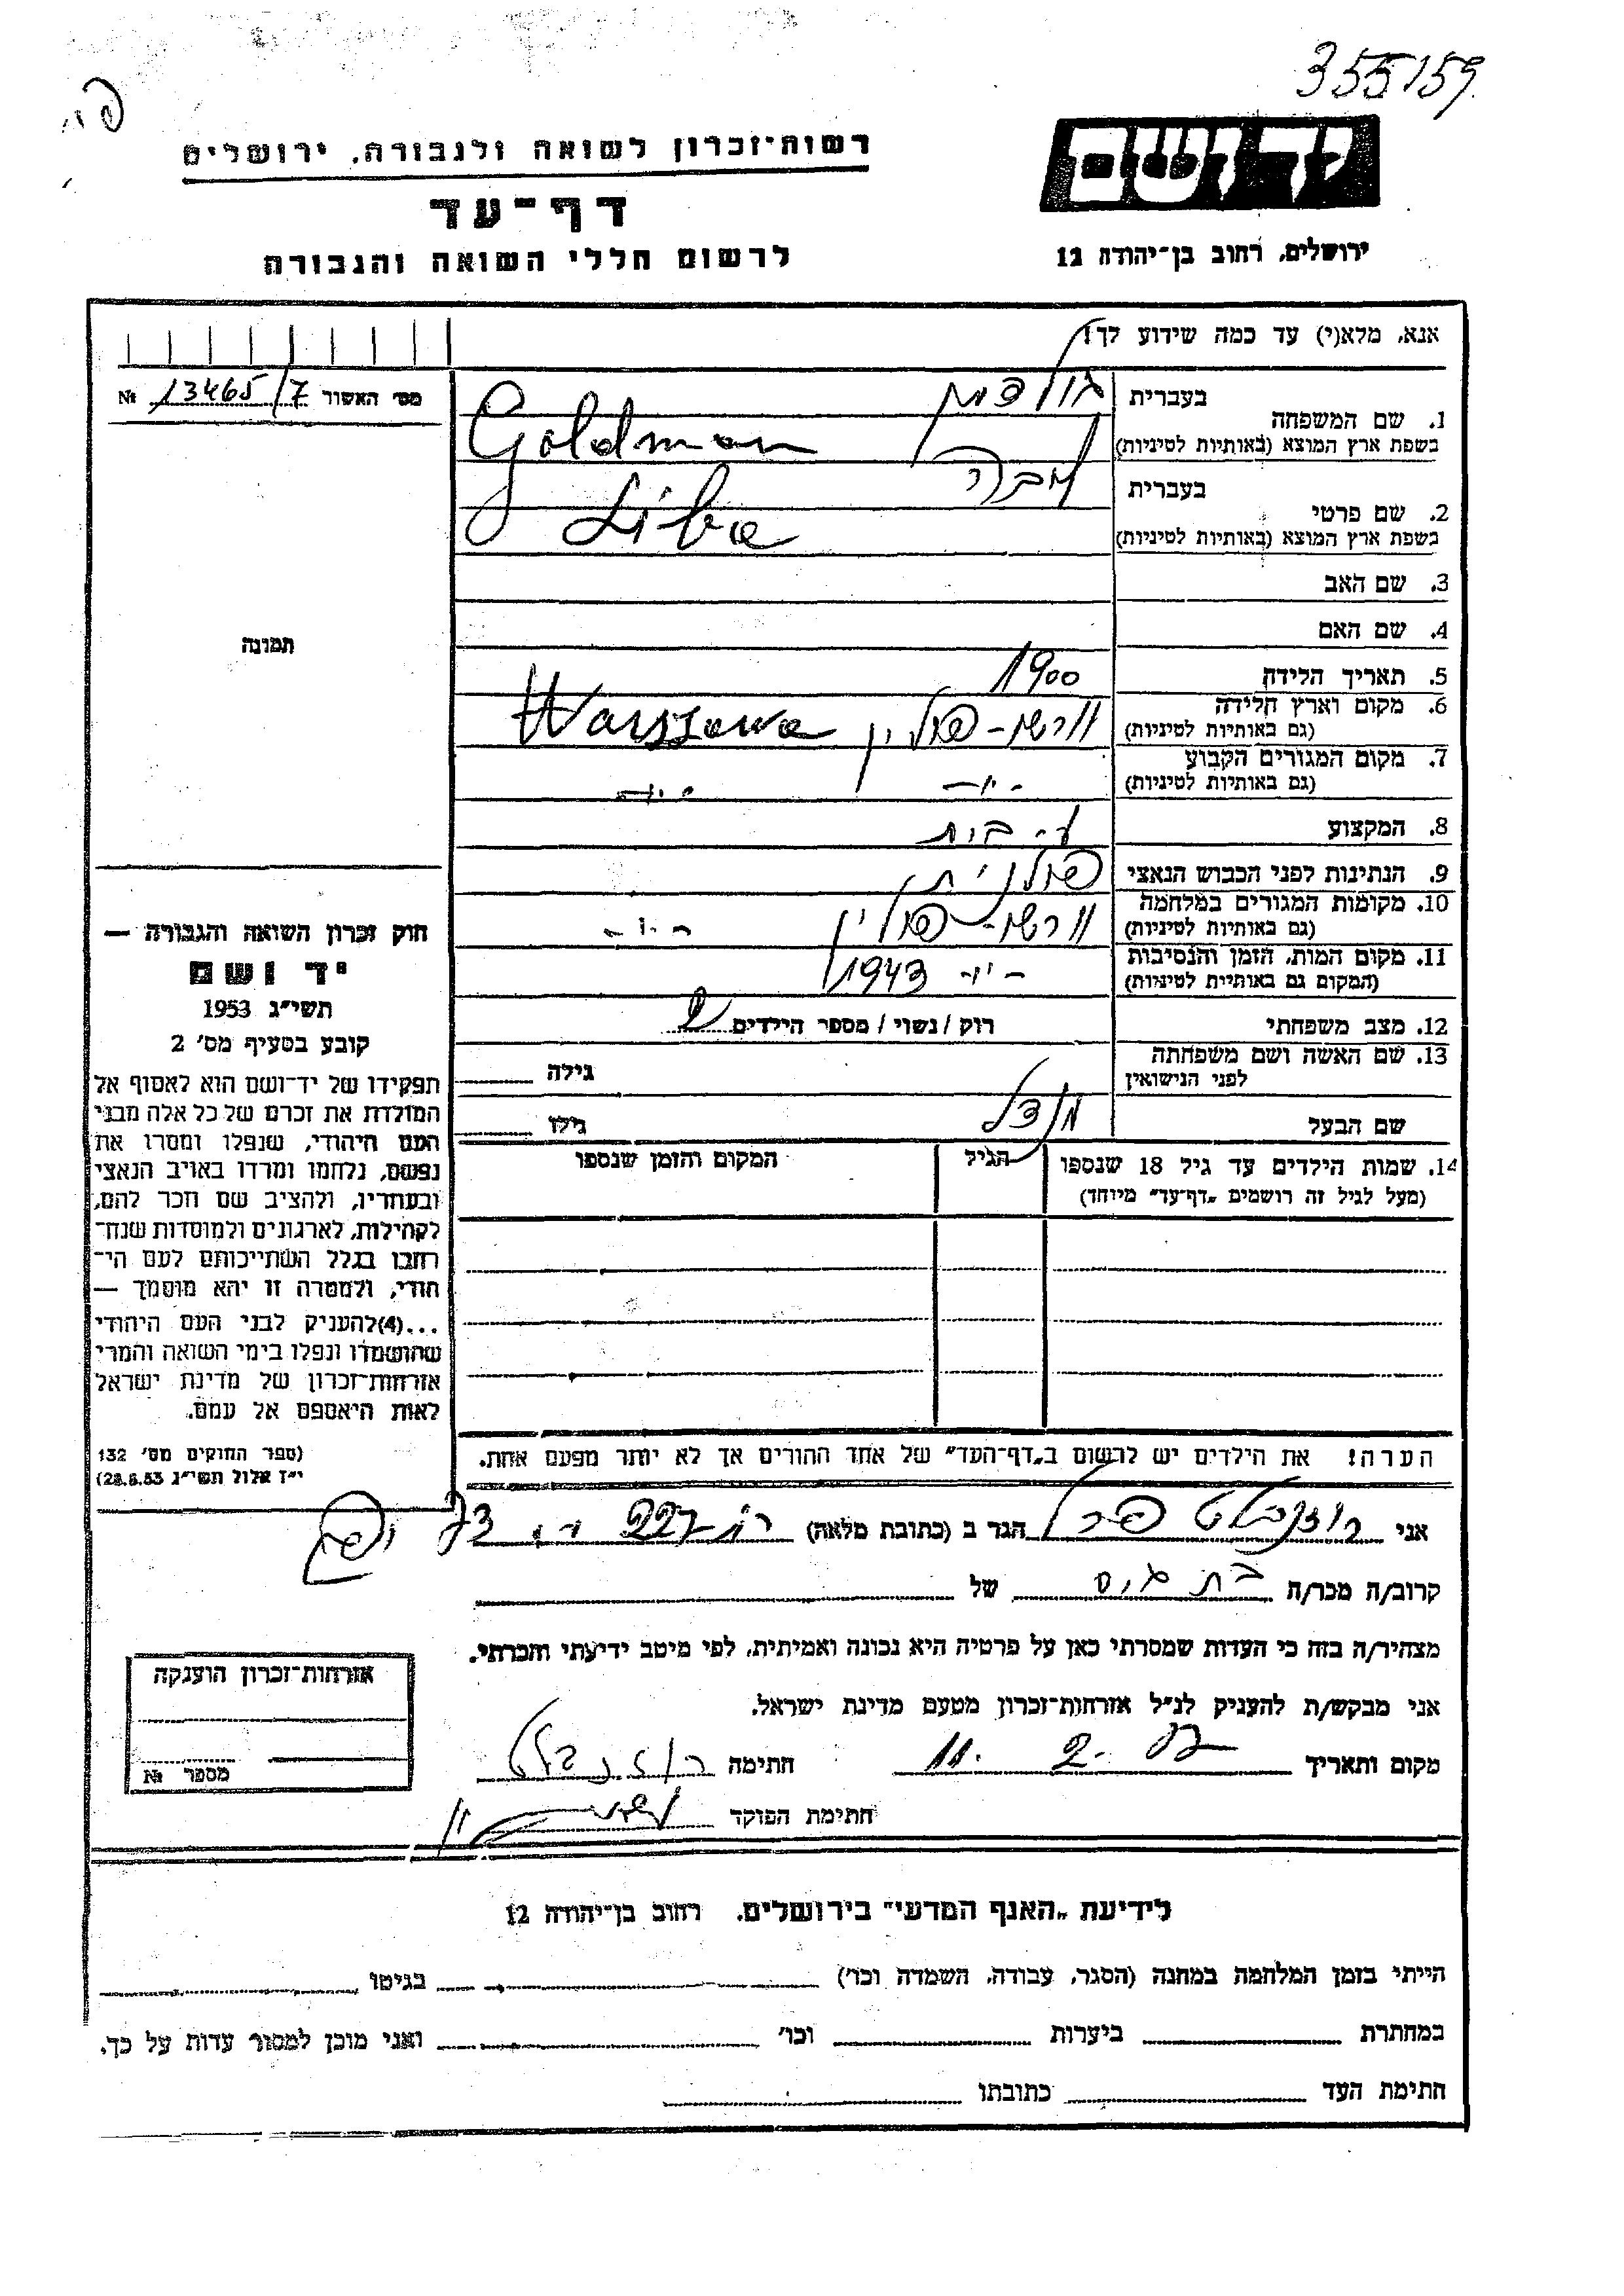 355159
רשות־זכרון לשואה ולגבורה, ירושלים
יד ושם
דף־עד
ירושלים, רחוב בן־יהודה 12
לרשום חללי השואה והגבורה
אנא, מלא(י) עד כמה שידוע לך!
מס׳ האשור 13465/7 №
1. שם המשפחה
בעברית גולדמן
בשפת ארץ המוצא (באותיות לטיניות) Goldman
2. שם פרטי
בעברית ליבה
בשפת ארץ המוצא (באותיות לטיניות) Liba
3. שם האב
4. שם האם
תמונה
5. תאריך הלידה 1900
6. מקום וארץ הלידה ורשו - פולין Warszawa
(גם באותיות לטיניות)
7. מקום המגורים הקבוע -"- -"-
(גם באותיות לטיניות)
8. המקצוע ע. בית
9. הנתינות לפני הכבוש הנאצי פולנית
10. מקומות המגורים במלחמה ורשו - פולין -"-
(גם באותיות לטיניות)
11. מקום המות, הזמן והנסיבות -"- 1943
(המקום גם באותיות לטיניות)
12. מצב משפחתי רוק / נשוי / מספר הילדים 2
13. שם האשה ושם משפחתה
לפני הנישואין גילה
שם הבעל מנדל גילו
14. שמות הילדים עד גיל 18 שנספו הגיל המקום והזמן שנספו
(מעל לגיל זה רושמים „דף־עד״ מיוחד)
חוק זכרון השואה והגבורה —
יד ושם
תשי״ג 1953
קובע בסעיף מס׳ 2
תפקידו של יד־ושם הוא לאסוף אל
המולדת את זכרם של כל אלה מבני
העם היהודי, שנפלו ומסרו את
נפשם, נלחמו ומרדו באויב הנאצי
ובעוזריו, ולהציב שם וזכר להם,
לקהילות, לארגונים ולמוסדות שנח־
רחבו בגלל השתייכותם לעם הי־
הודי, ולמטרה זו יהא מוסמך —
...(4)להעניק לבני העם היהודי
שהושמדו ונפלו בימי השואה והמרי
אזרחות־זכרון של מדינת ישראל
לאות היאספם אל עמם.
(ספר החוקים מס׳ 132
י״ז אלול תשי״ג 28.8.53)
הערה! את הילדים יש לרשום ב„דף־העד״ של אחד ההורים אך לא יותר מפעם אחת.
אני רוזנבלט הגר ב (כתובת מלאה)
קרוב/ה מכר/ה בת גיס של
מצהיר/ה בזה כי העדות שמסרתי כאן על פרטיה היא נכונה ואמיתית, לפי מיטב ידיעתי והכרתי.
אני מבקש/ת להעניק לנ״ל אזרחות־זכרון מטעם מדינת ישראל.
מקום ותאריך חתימה רוזנבלט
חתימת הפוקד
אזרחות־זכרון הוענקה
מספר №
לידיעת „האגף המדעי״ בירושלים, רחוב בן־יהודה 12
הייתי בזמן המלחמה במחנה (הסגר, עבודה, השמדה וכו׳) בגיטו
במחתרת ביערות וכו׳ ואני מוכן למסור עדות על כך.
חתימת העד כתובתו